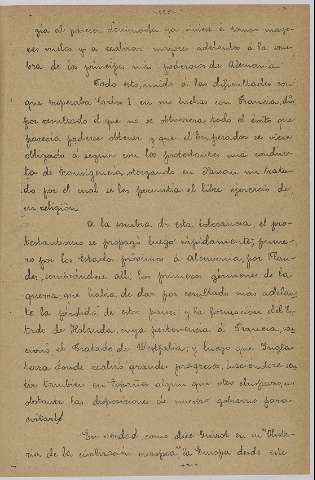 gía al parecer dominada ya volvió á tomar mayo-
res vuelos y a realizar mayores adelantos á la som-
bra de los príncipes mas poderosos de Alemania.
Todo esto, unido á las dificultades con
que tropezaba Carlos I en sus luchas con Francia, dió
por resultado el que no se obtuviera todo el éxito que
parecía poderse obtener y que el Emperador se viera
obligado á seguir con los protestantes una conduc-
ta de transigencia, otorgando en Passau un trata-
do por el cual se les permitía el libre ejercicio de
su religión.
A la sombra de esta tolerancia, el pro-
testantismo se propagó luego rápidamente; prime-
ro por los Estados próximos á Alemania, por Flan-
des, sembrándose allí los primeros gérmenes de la
guerra que había de dar por resultado mas adelan-
te la pérdida de estos paises y la formacion del Es-
tado de Holanda, cuya pertenencia á Francia,
el Tratado de Westfalia; y luego por Ingla-
terra donde realizó grandes progresos,
tambien en España algun que otro chispazo, no
obstante las disposiciones de nuestro gobierno para
evitarlo.
En verdad como dice Guizot en su "Histo-
ria de la civilización europea" la Europa desde este